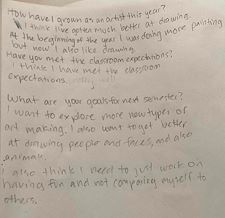 How have I grown as an artist this year?
I think I've gotten much better at drawing.
At the beginning of the year I was doing more painting
but now I also like drawing.
Have you met the classroom expectations?
I think I have met the classroom
expectations.
What are your goals for next semester?
I want to explore more new types of
art making. I also want to get better
at drawing people and faces, and also
animals.
I also think I need to just work on
having fun and not comparing myself to
others.